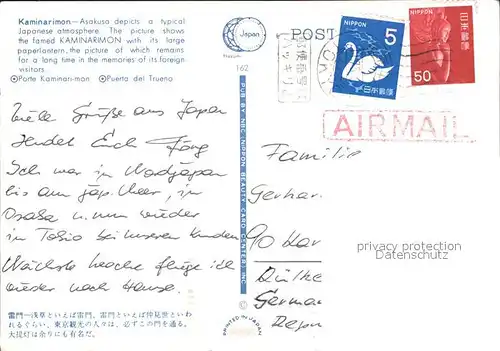 Kaminarimon—Asakusa depicts a typical
Japanese atmosphere. The picture shows
the famed KAMINARIMON with its large
paperlantern, the picture of which remains
for a long time in the memories of its foreign
visitors.
○Porte Kaminari-mon ○Puerta del Trueno
Viele Grüße aus Japan
sendet Euch
Ich war in Nordjapan
bis am jap. Meer, in
Osaka u. nun wieder
in Tokio bei unseren Kunden
Nächste Woche fliege ich
wieder nach Hause.
雷門—浅草といえば雷門、雷門といえば仲見世といわ
れるぐらい、東京観光の人々は、必ずこの門を通る。
大提灯は余りにも有名だ。
Japan
162
PUB. BY NBC. NIPPON BEAUTY CARD CENTER, INC.
©
PRINTED IN JAPAN
POST
NIPPON
5
日本郵便
NIPPON
50
日本郵便
郵便番号
ハッキリ
AIRMAIL
Familie
Gerhar
90 Kar
Dülke
German
Repu
privacy protection
Datenschutz